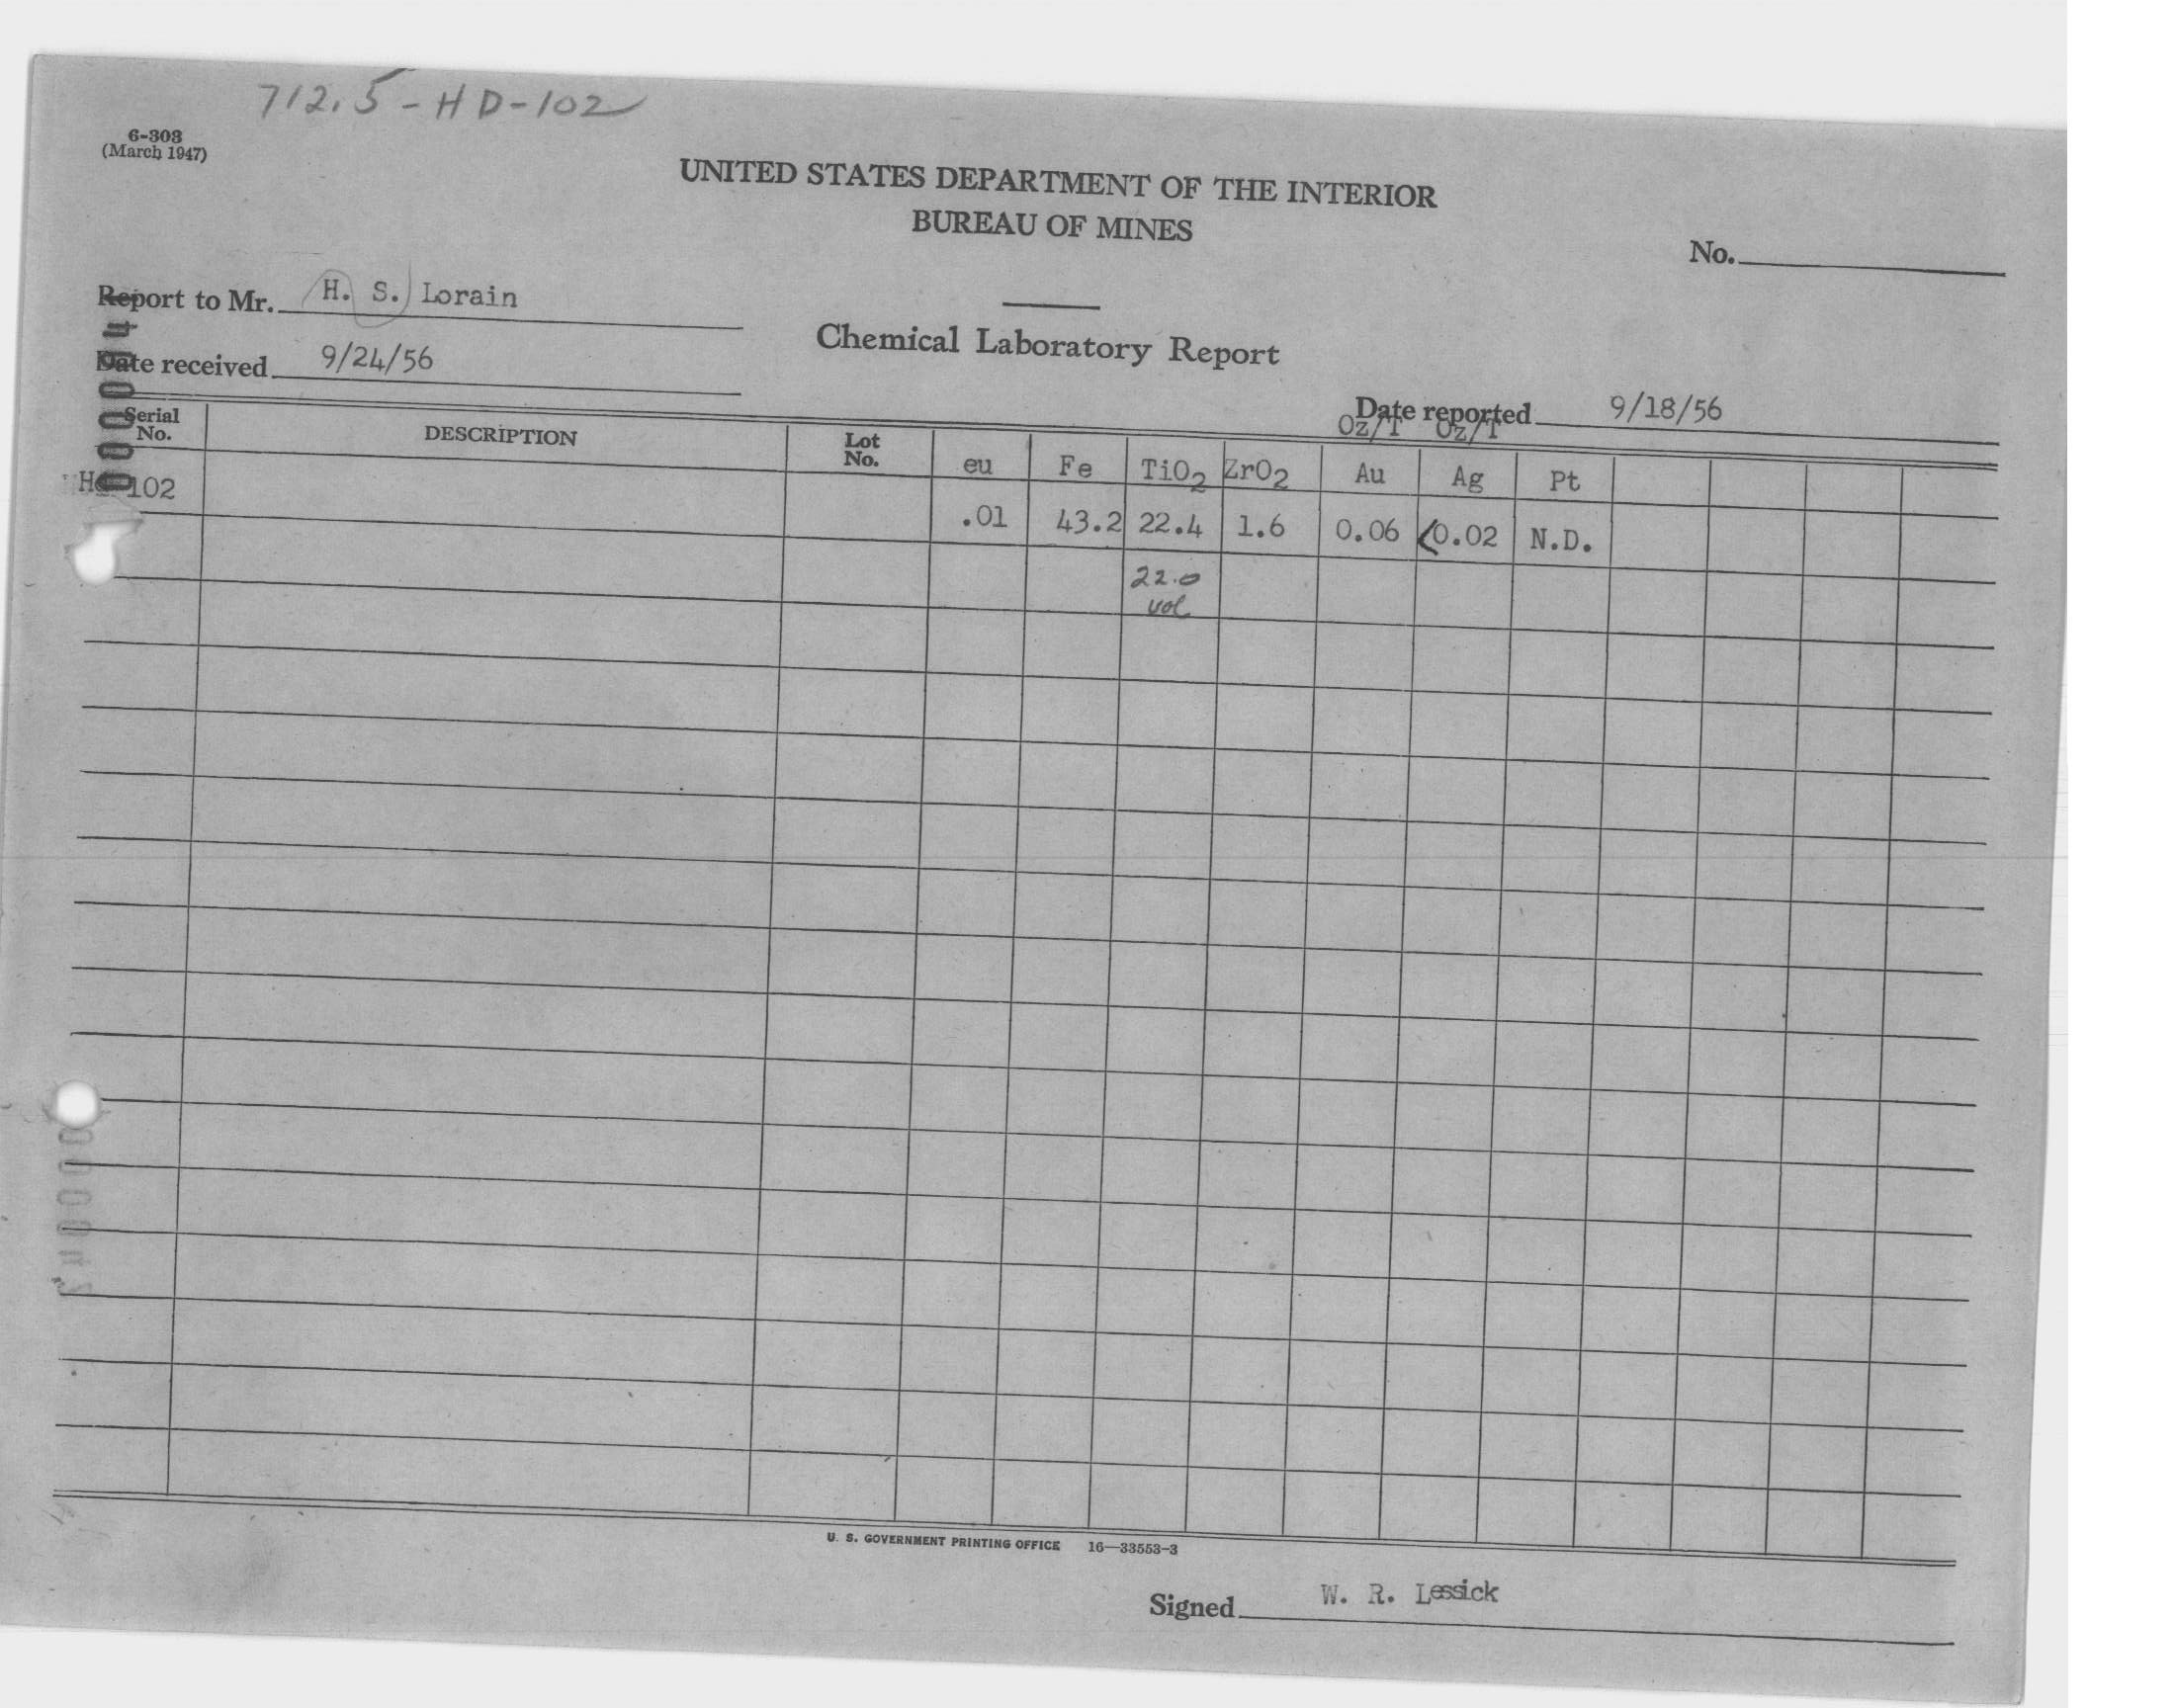 712.5-HD-102
6-303
(March 1947)
UNITED STATES DEPARTMENT OF THE INTERIOR
BUREAU OF MINES
No.
Report to Mr. H. S. Lorain
Chemical Laboratory Report
Date received 9/24/56
Date reported 9/18/56
Oz/T Oz/T
Serial No. DESCRIPTION Lot No. eu Fe TiO2 ZrO2 Au Ag Pt
102
.01 43.2 22.4 1.6 0.06 <0.02 N.D.
22.0
vol
U. S. GOVERNMENT PRINTING OFFICE 16—33553-3
Signed W. R. Lessick